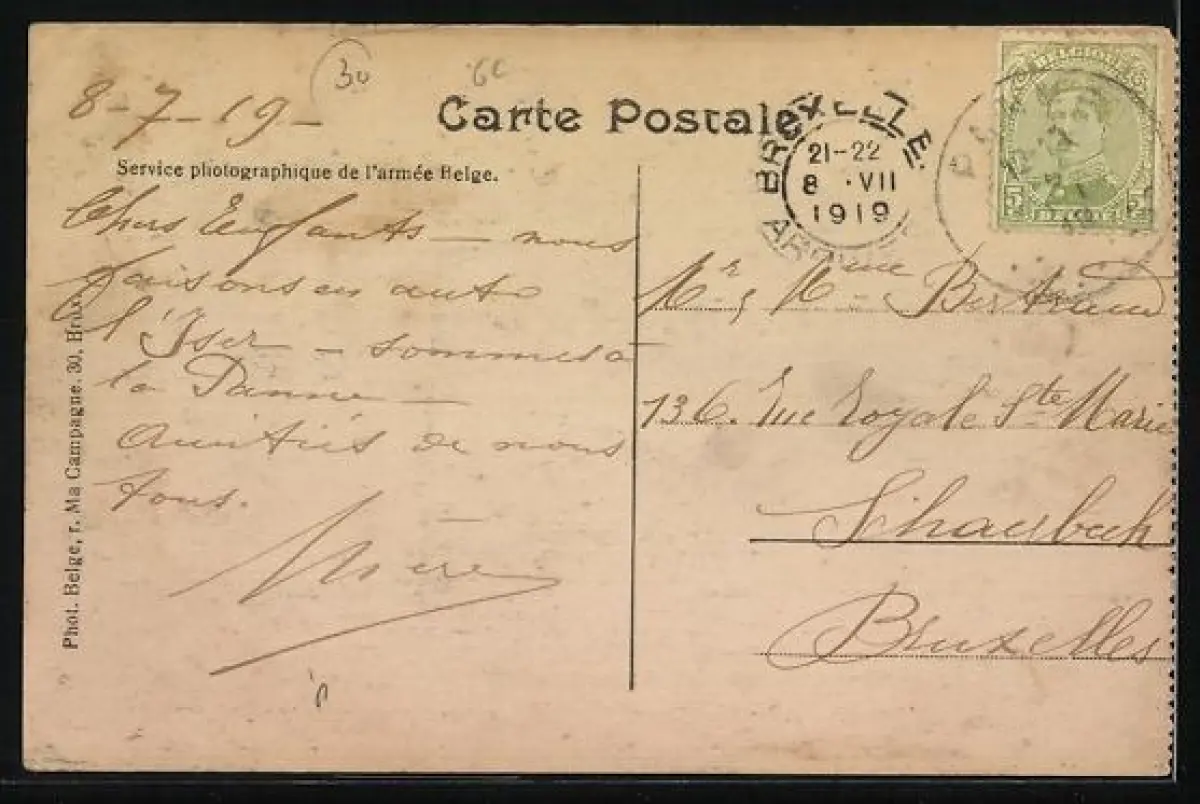 30
8-7-19-
Carte Postale
Service photographique de l'armée Belge.
Chers Enfants — nous
faisons en auto
l'Yser — sommes a
la Panne —
Amitiés de nous
tous.
Mère
Phot. Belge, r. Ma Campagne. 30, Brux.
BRUXELLE
21-22
8 · VII
1919
BELGIQUE
5 5
Mr & Mme
136. Rue Royale Ste Marie
Schaerbeek
Bruxelles